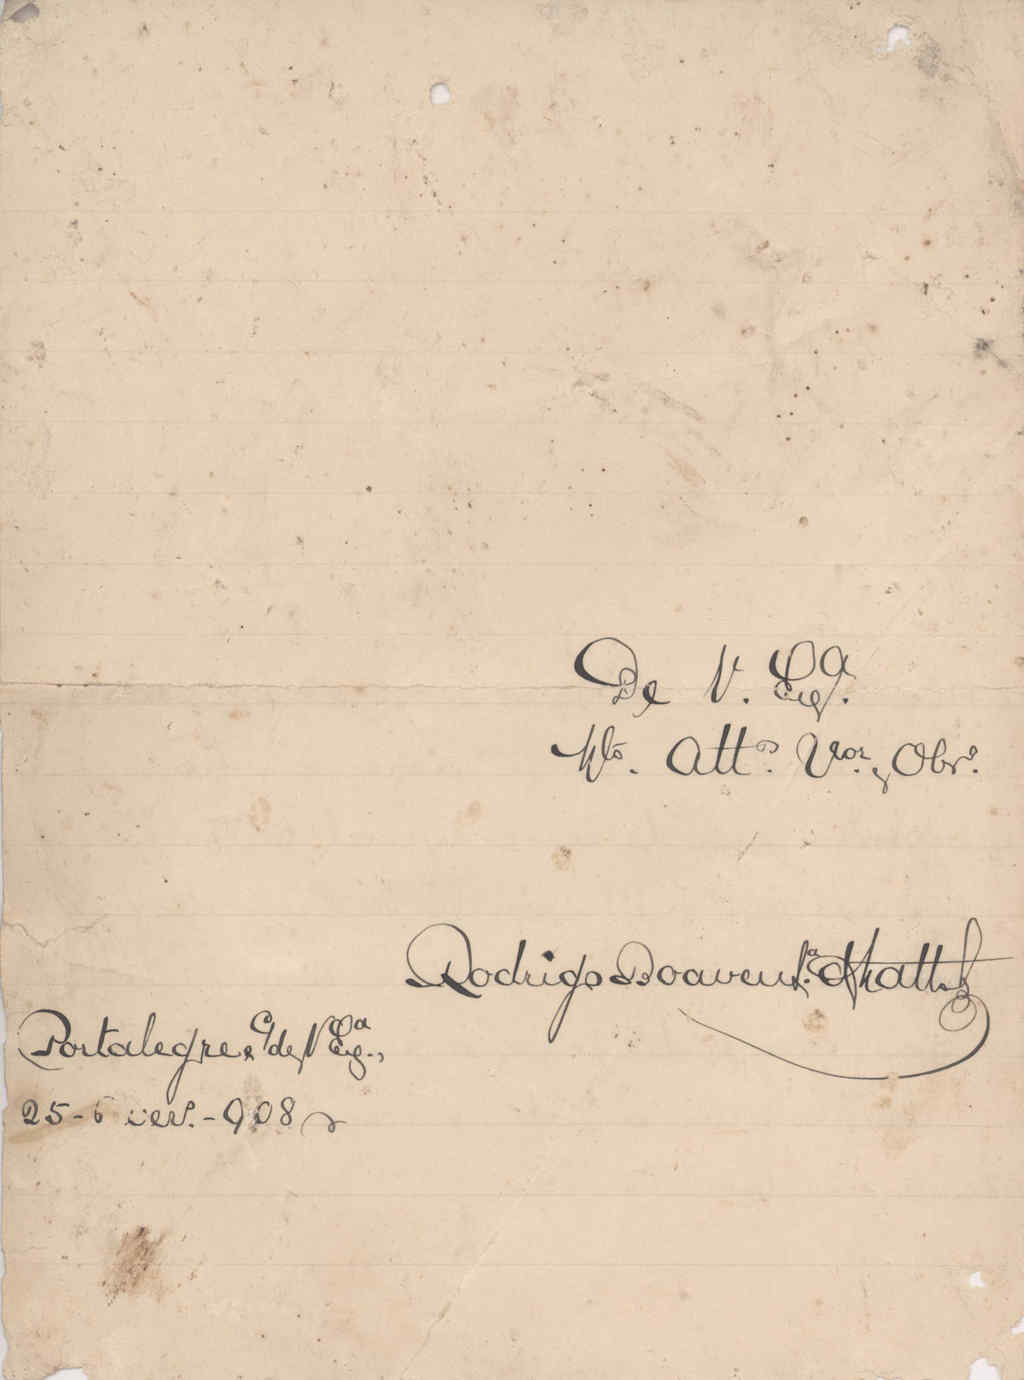 De V. Exª.
Mto. Attº. Vor. e Obrº.
Rodrigo Boaventª.
Portalegre, C/ de V Exª.,
25 - Fever.º - 908